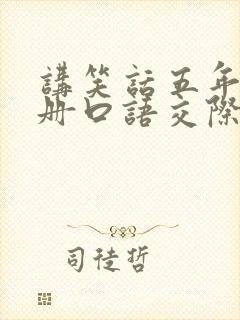 講笑話五年
册口語交際
司徒哲